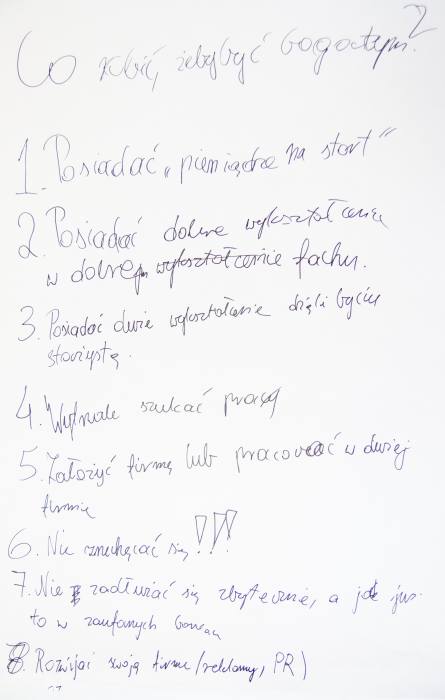 Co robić, żeby być bogatym?
1. Posiadać „pieniądze na start"
2. Posiadać dobre wykształcenie
w dobrym wykształcenie fachu.
3. Posiadać duże wykształcenie dzięki byciu
stażystą.
4. Wytrwale szukać pracy
5. Założyć firmę lub pracować w dużej
firmie
6. Nie zniechęcać się !!!
7. Nie zadłużać się zbytecznie, a jak już
to w zaufanych bankach
8. Rozwijać swoją firmę (reklamy, PR)